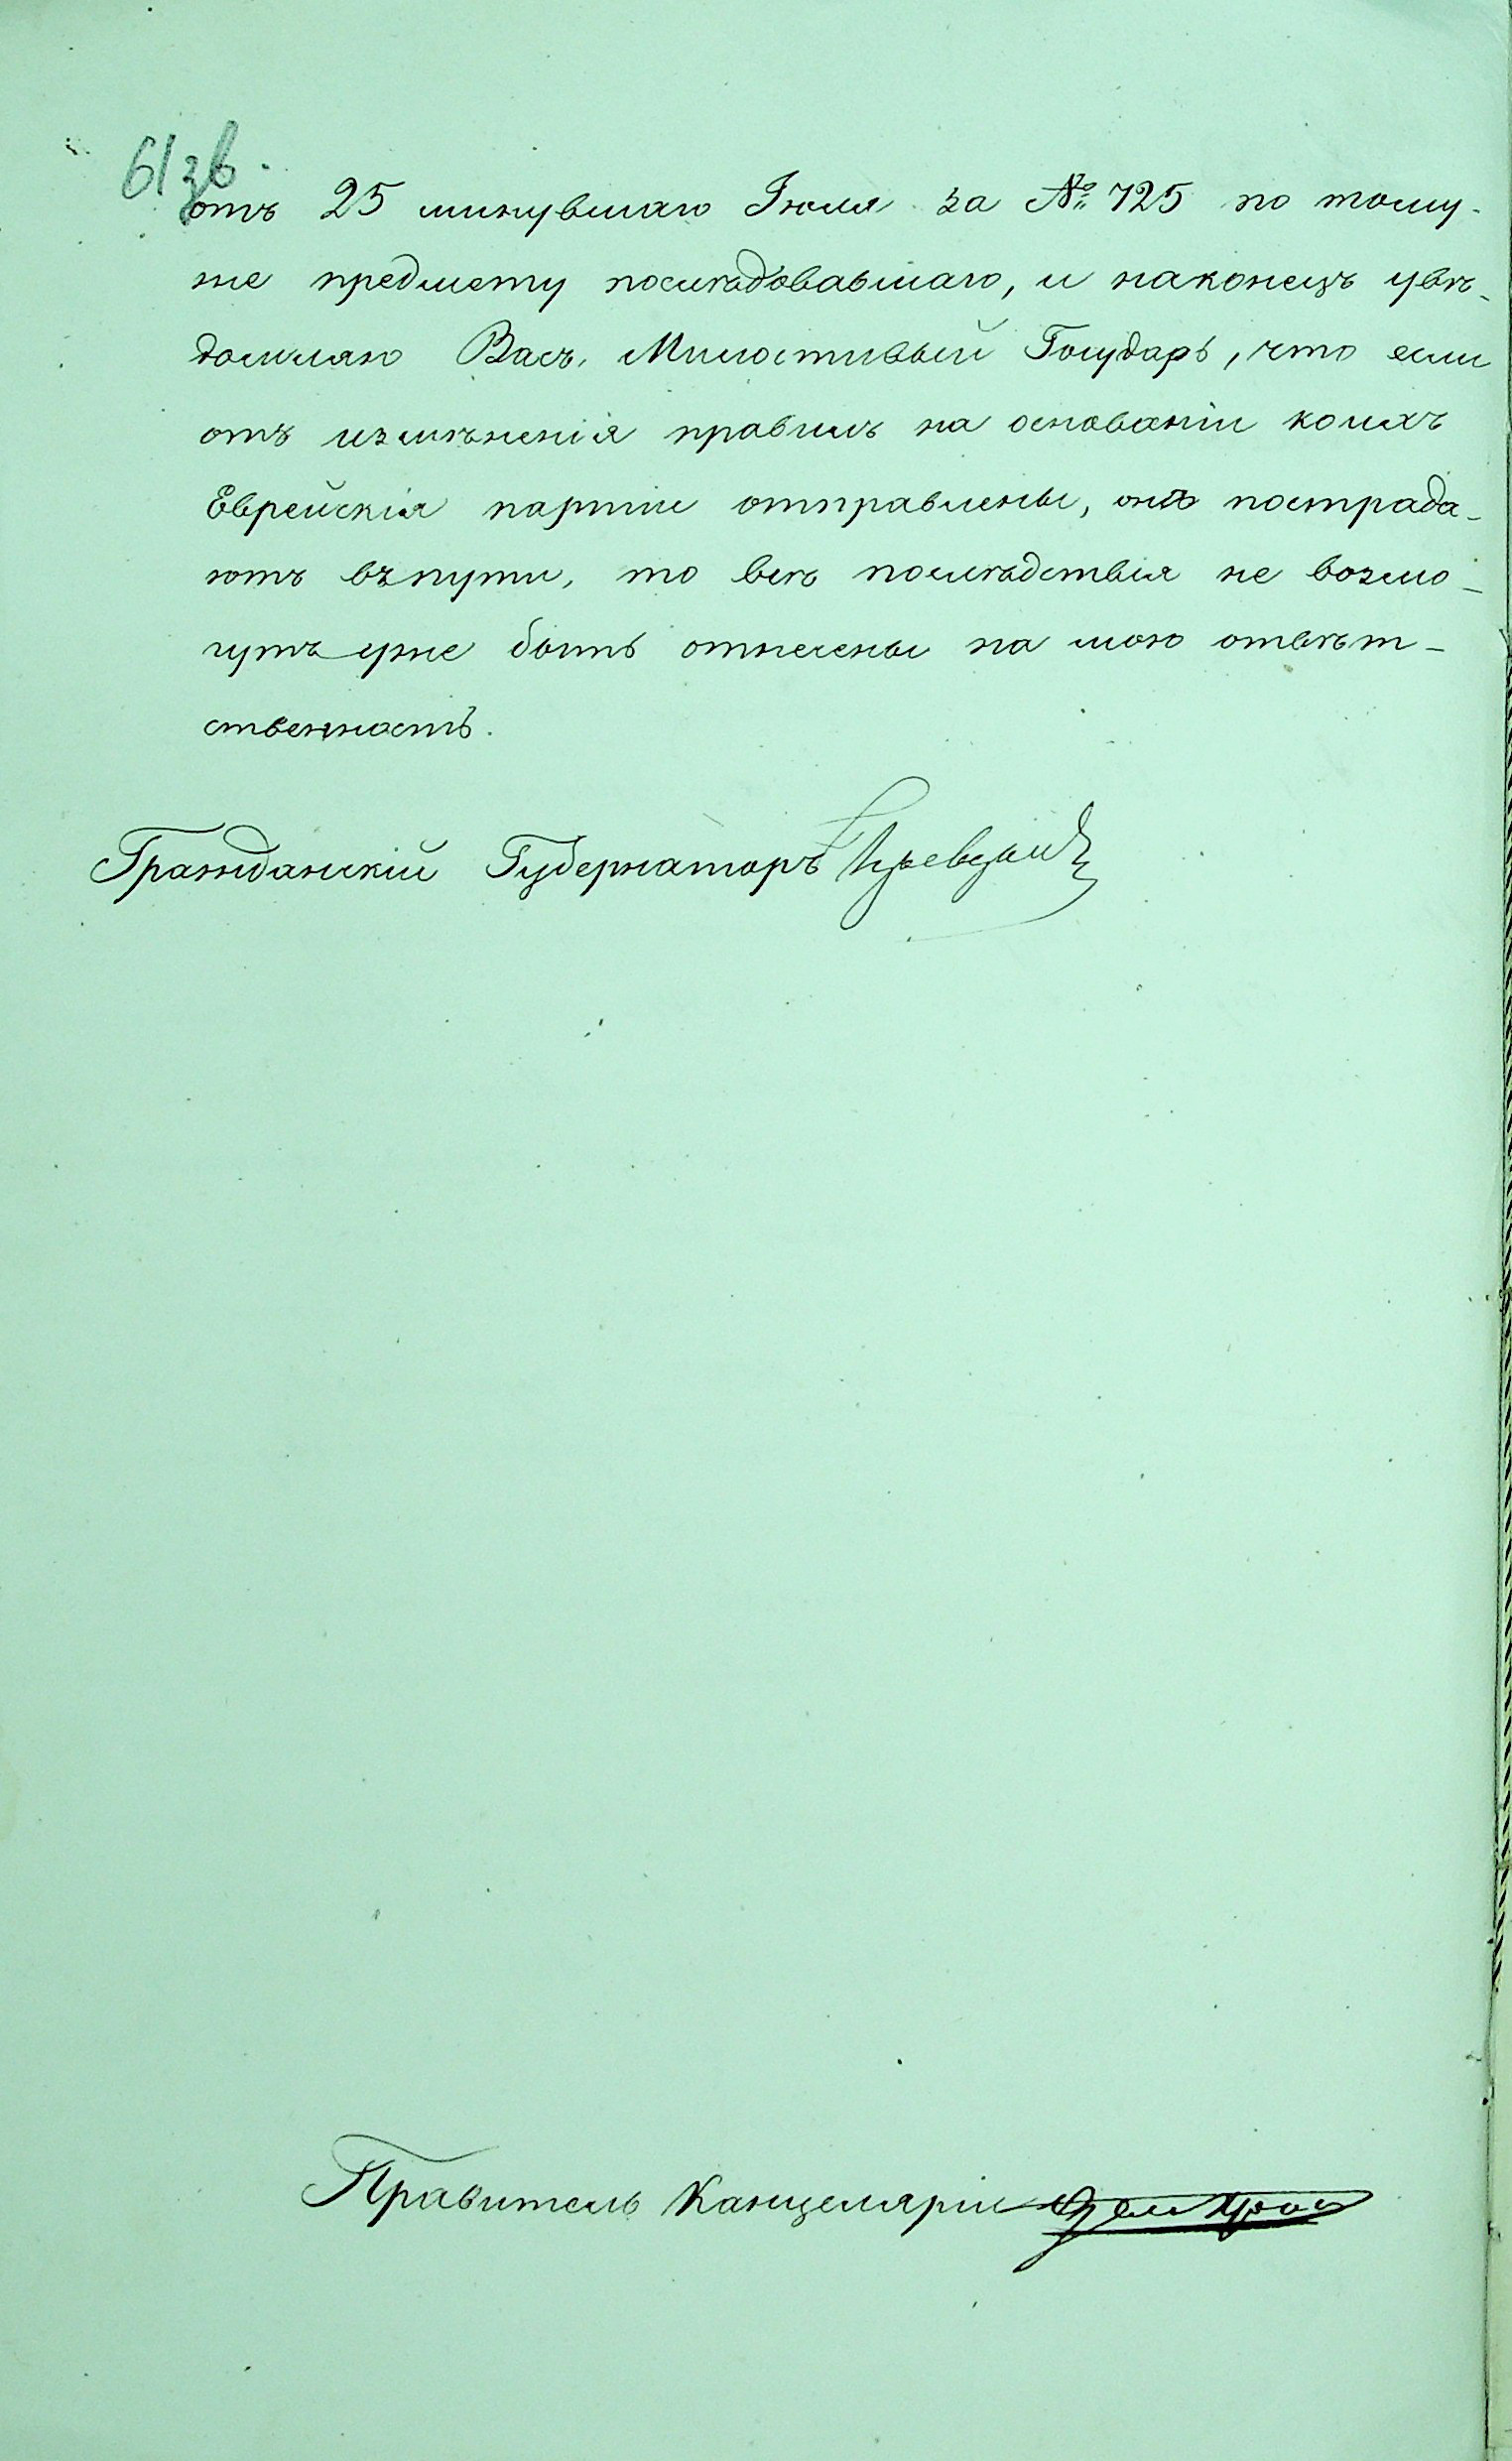 61 зв.
отъ 25 минувшаго Іюля за № 725 по тому-
же предмету послѣдовавшаго, и наконецъ увѣ-
домляю Васъ, Милостивый Государь, что если
отъ измѣненія правилъ на основаніи коихъ
Еврейскія партіи отправлены, онѣ пострада-
ютъ въ пути, то всѣ послѣдствія не возмо-
гутъ уже быть отнесены на мою отвѣт-
ственность.
Гражданскій Губернаторъ
Правитель Канцеляріи